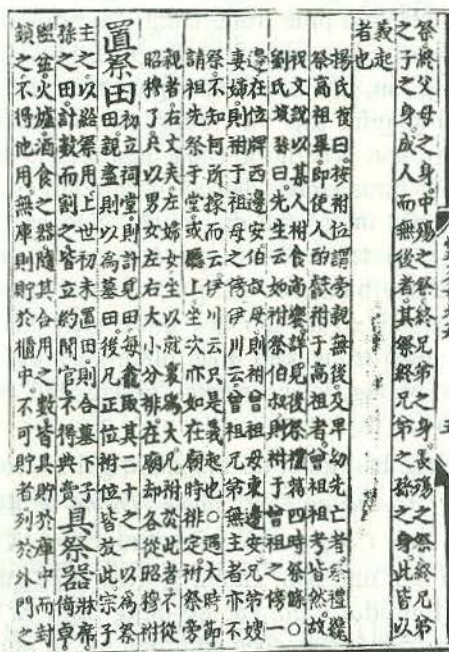 祭終父母之身中殤之祭終兄弟之身長殤之祭終兄弟
之子之身成人而無後者其祭終兄弟之孫之身此皆以
義起
者也
楊氏復曰按祔位謂旁親無後及卑幼先亡者祭禮纔
祭高祖畢即使人酌獻祔于高祖者曾祖祖考皆然故
祝文說以某人祔食尚饗詳見後祭禮篇四時祭條○
劉氏垓孫曰先生云如祔祭伯叔則祔于曾祖之傍一
邊在位牌西邊安伯叔母則祔曾祖母東邊安兄弟嫂
妻婦則祔于祖母之傍伊川云曾祖兄弟無主者亦不
祭不知何所據而云伊川云只是義起也○遇大時節
請祖先祭于堂或廳上坐次亦如在廟時排定祔祭旁
親者右丈夫左婦女坐以就裏為大凡祔於此者不從
昭穆了只以男女左右大小分排在廟却各從昭穆祔
置祭田
初立祠堂則計見田每龕取其二十之一以為祭
田親盡則以為墓田後凡正位祔位皆放此宗子
主之以給祭用上世初未置田則合墓下子
孫之田計數而割之皆立約聞官不得典賣
具祭器
牀席
倚卓
盥盆火爐酒食之器隨其合用之數皆具貯於庫中而封
鎖之不得他用無庫則貯於櫃中不可貯者列於外門之